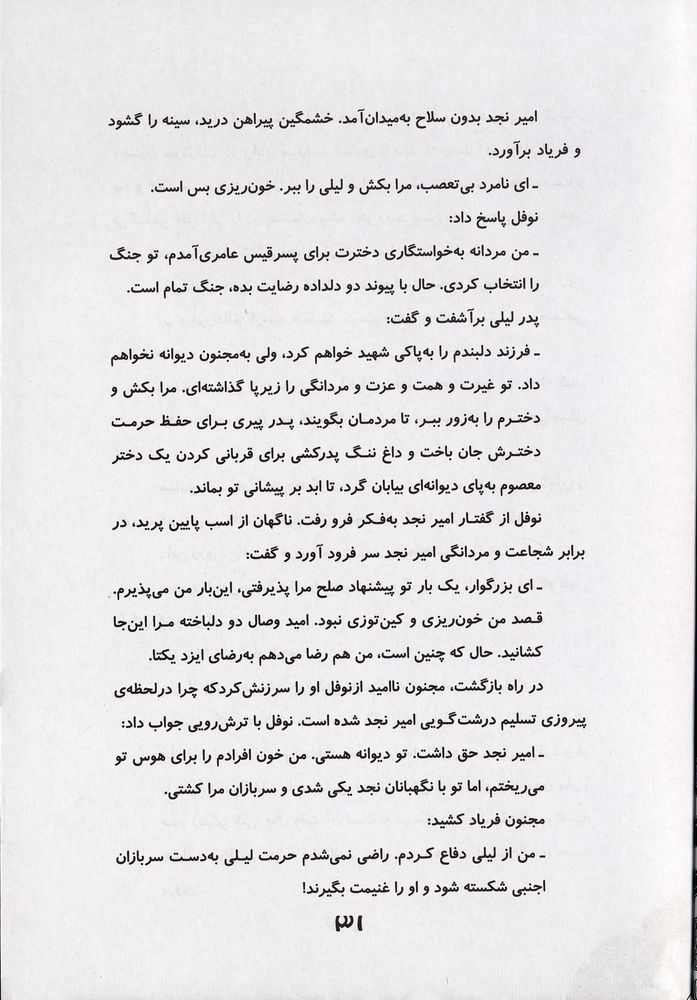 امیر نجد بدون سلاح به‌میدان‌آمد. خشمگین پیراهن درید، سینه را گشود
و فریاد برآورد.
ـ ای نامرد بی‌تعصب، مرا بکش و لیلی را ببر. خون‌ریزی بس است.
نوفل پاسخ داد:
ـ من مردانه به‌خواستگاری دخترت برای پسرقیس عامری‌آمدم، تو جنگ
را انتخاب کردی. حال با پیوند دو دلداده رضایت بده، جنگ تمام است.
پدر لیلی برآشفت و گفت:
ـ فرزند دلبندم را به‌پاکی شهید خواهم کرد، ولی به‌مجنون دیوانه نخواهم
داد. تو غیرت و همت و عزت و مردانگی را زیرپا گذاشته‌ای. مرا بکش و
دخترم را به‌زور ببر، تا مردمان بگویند، پدر پیری برای حفظ حرمت
دخترش جان باخت و داغ ننگ پدرکشی برای قربانی کردن یک دختر
معصوم به‌پای دیوانه‌ای بیابان گرد، تا ابد بر پیشانی تو بماند.
نوفل از گفتار امیر نجد به‌فکر فرو رفت. ناگهان از اسب پایین پرید، در
برابر شجاعت و مردانگی امیر نجد سر فرود آورد و گفت:
ـ ای بزرگوار، یک بار تو پیشنهاد صلح مرا پذیرفتی، این‌بار من می‌پذیرم.
قصد من خون‌ریزی و کین‌توزی نبود. امید وصال دو دلباخته مرا این‌جا
کشانید. حال که چنین است، من هم رضا می‌دهم به‌رضای ایزد یکتا.
در راه بازگشت، مجنون ناامید ازنوفل او را سرزنش‌کردکه چرا درلحظه‌ی
پیروزی تسلیم درشت‌گویی امیر نجد شده است. نوفل با ترش‌رویی جواب داد:
ـ امیر نجد حق داشت. تو دیوانه هستی. من خون افرادم را برای هوس تو
می‌ریختم، اما تو با نگهبانان نجد یکی شدی و سربازان مرا کشتی.
مجنون فریاد کشید:
ـ من از لیلی دفاع کردم. راضی نمی‌شدم حرمت لیلی به‌دست سربازان
اجنبی شکسته شود و او را غنیمت بگیرند!
۳۱